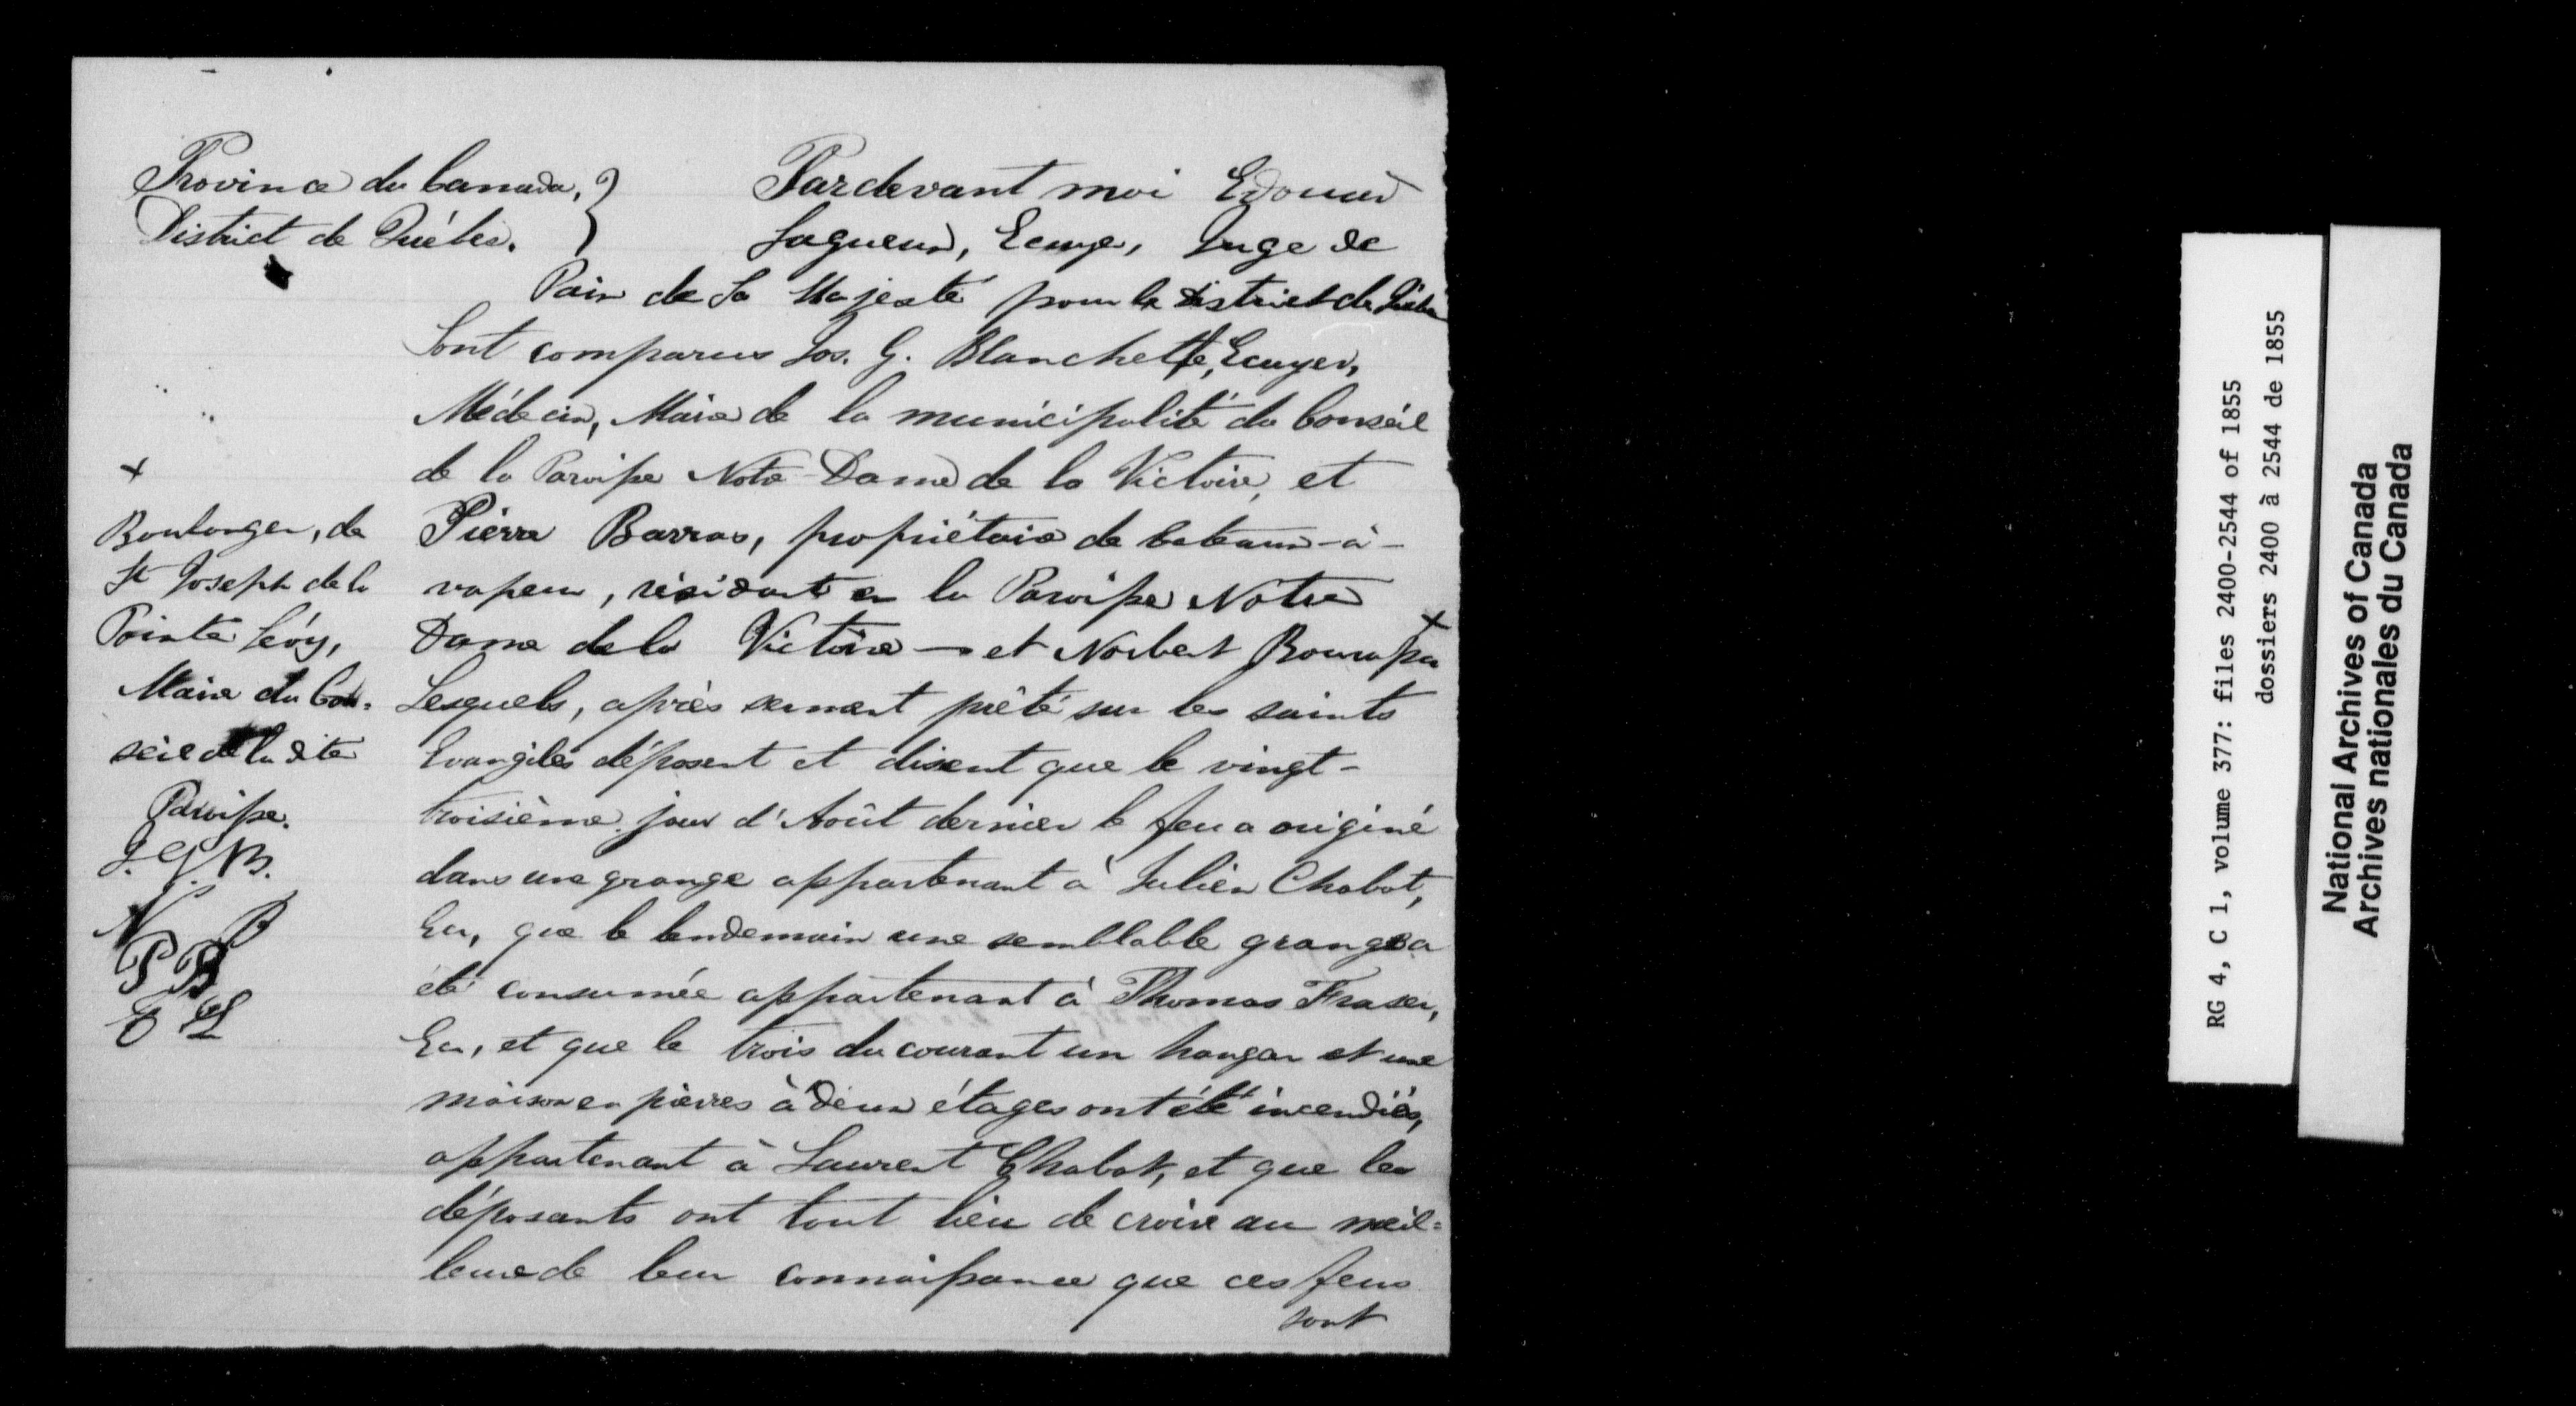 Province du Canada, }
District de Québec. }
Pardevant moi Edouard
Lagueux, Ecuyer, Juge de
Paix de Sa Majesté pour le district de Québec
Sont comparus Jos. G. Blanchette, Ecuyer,
Médecin, Maire de la municipalité du Conseil
de la Paroisse Notre-Dame de la Victoire, et
Pierre Barras, propriétaire de bateaux-à-
vapeur, résidant en la Paroisse Notre
Dame de la Victoire — et Norbert Bourassa x
Lesquels, après serment prêté sur les saints
Evangiles déposent et disent que le vingt-
troisième jour d'Août dernier le feu a originé
dans une grange appartenant à Julien Chabot,
Ecr, que le lendemain une semblable grange a
été consumée appartenant à Thomas Fraser,
Ecr, et que le trois du courant un hangar et une
maison en pierres à deux étages ont été incendiés,
appartenant à Laurent Chabot, et que les
déposants ont tout lieu de croire au meil=
leure de leur connaissance que ces feux
sont
x
Boulanger, de
St Joseph de la
Pointe Lévy,
Maire du Con=
seil de la dite
Paroisse.
J. G. B.
N B
P B
E L
RG 4, C 1, volume 377: files 2400-2544 of 1855
dossiers 2400 à 2544 de 1855
National Archives of Canada
Archives nationales du Canada